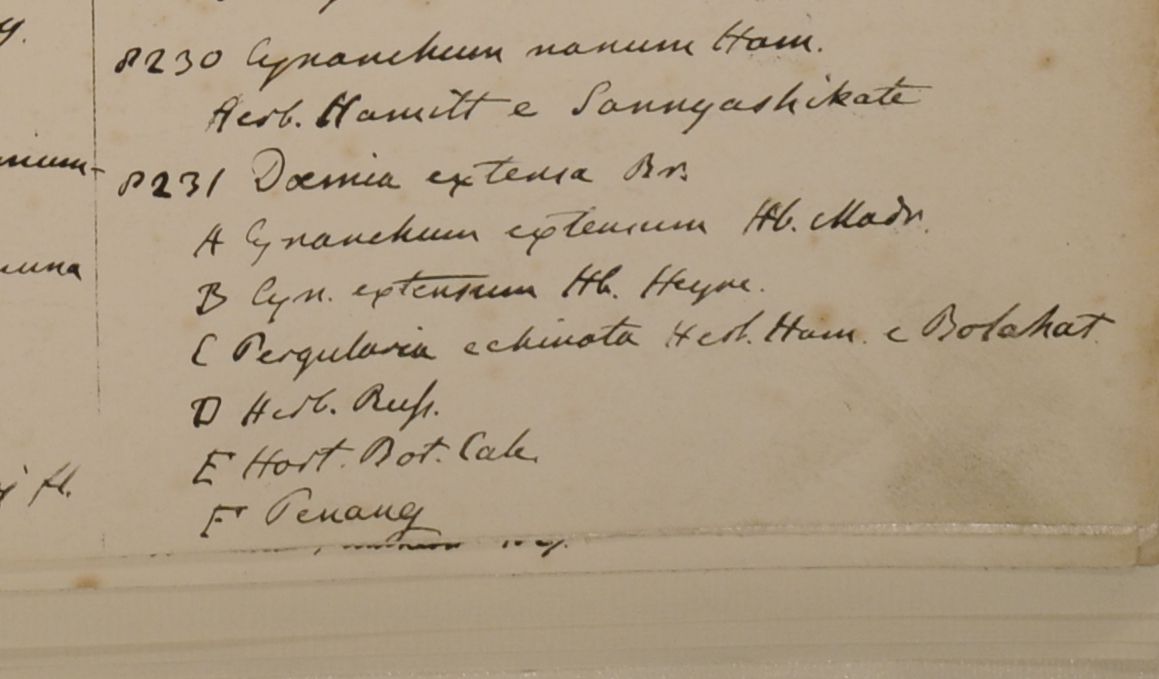 8230 Cynanchum nanum Ham.
Herb. Hamilt e Sannyashikate
8231 Dæmia extensa Br.
A Cynanchum extensum Hb. Madr.
B Cyn. extensum Hb. Heyne.
C Pergularia echinata Herb. Ham. e Bolahat
D Herb. Russ.
E Hort. Bot. Calc.
F Penang